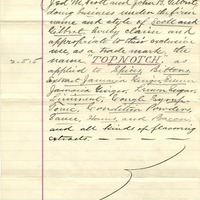 Jed M. Scott and John R. Gilbert,
doing business under the firm
name and style of Scott and
Gilbert, hereby claim and
appropriate to their exclusive
use as a trade mark, the
name TOPNOTCH, as
2515
applied to Spices, Bitters,
Extract Jamaica Ginger, Essence
Jamaica Ginger, Lemon Sugar,
Liniment, Cough Syrup,
Tonic, Condition Powders,
Sauce, Hams and Bacon,
and all kinds of flavoring
extracts.